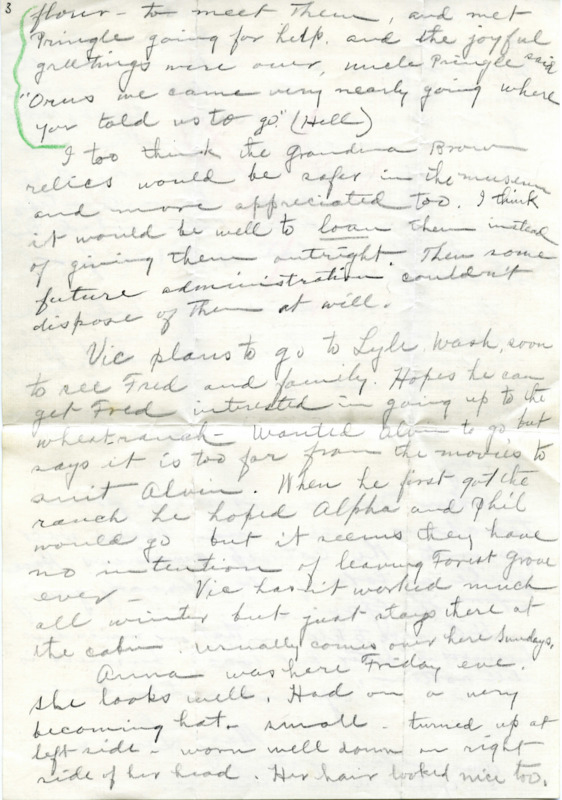 3
flour - to meet them, and met
Pringle going for help. and the joyful
greetings were over, uncle Pringle said
"Orus we came very nearly going where
you told us to go." (Hell)
I too think the grandma Brown
relics would be safer in the museum
and more appreciated too. I think
it would be well to loan them instead
of giving them outright. Then some
future administration couldn't
dispose of them at will.
Vic plans to go to Lyle, Wash, soon
to see Fred and family. Hopes he can
get Fred interested in going up to the
wheat ranch - Wanted Alvin to go but
says it is too far from the movies to
suit Alvin. When he first got the
ranch he hoped Alpha and Phil
would go but it seems they have
no intention of leaving Forest Grove
ever - Vic hasn't worked much
all winter but just stays there at
the cabin. usually comes over here Sundays.
Anna was here Friday eve.
She looks well. Had on a very
becoming hat - small - turned up at
left side - worn well down on right
side of her head. Her hair looked nice too.